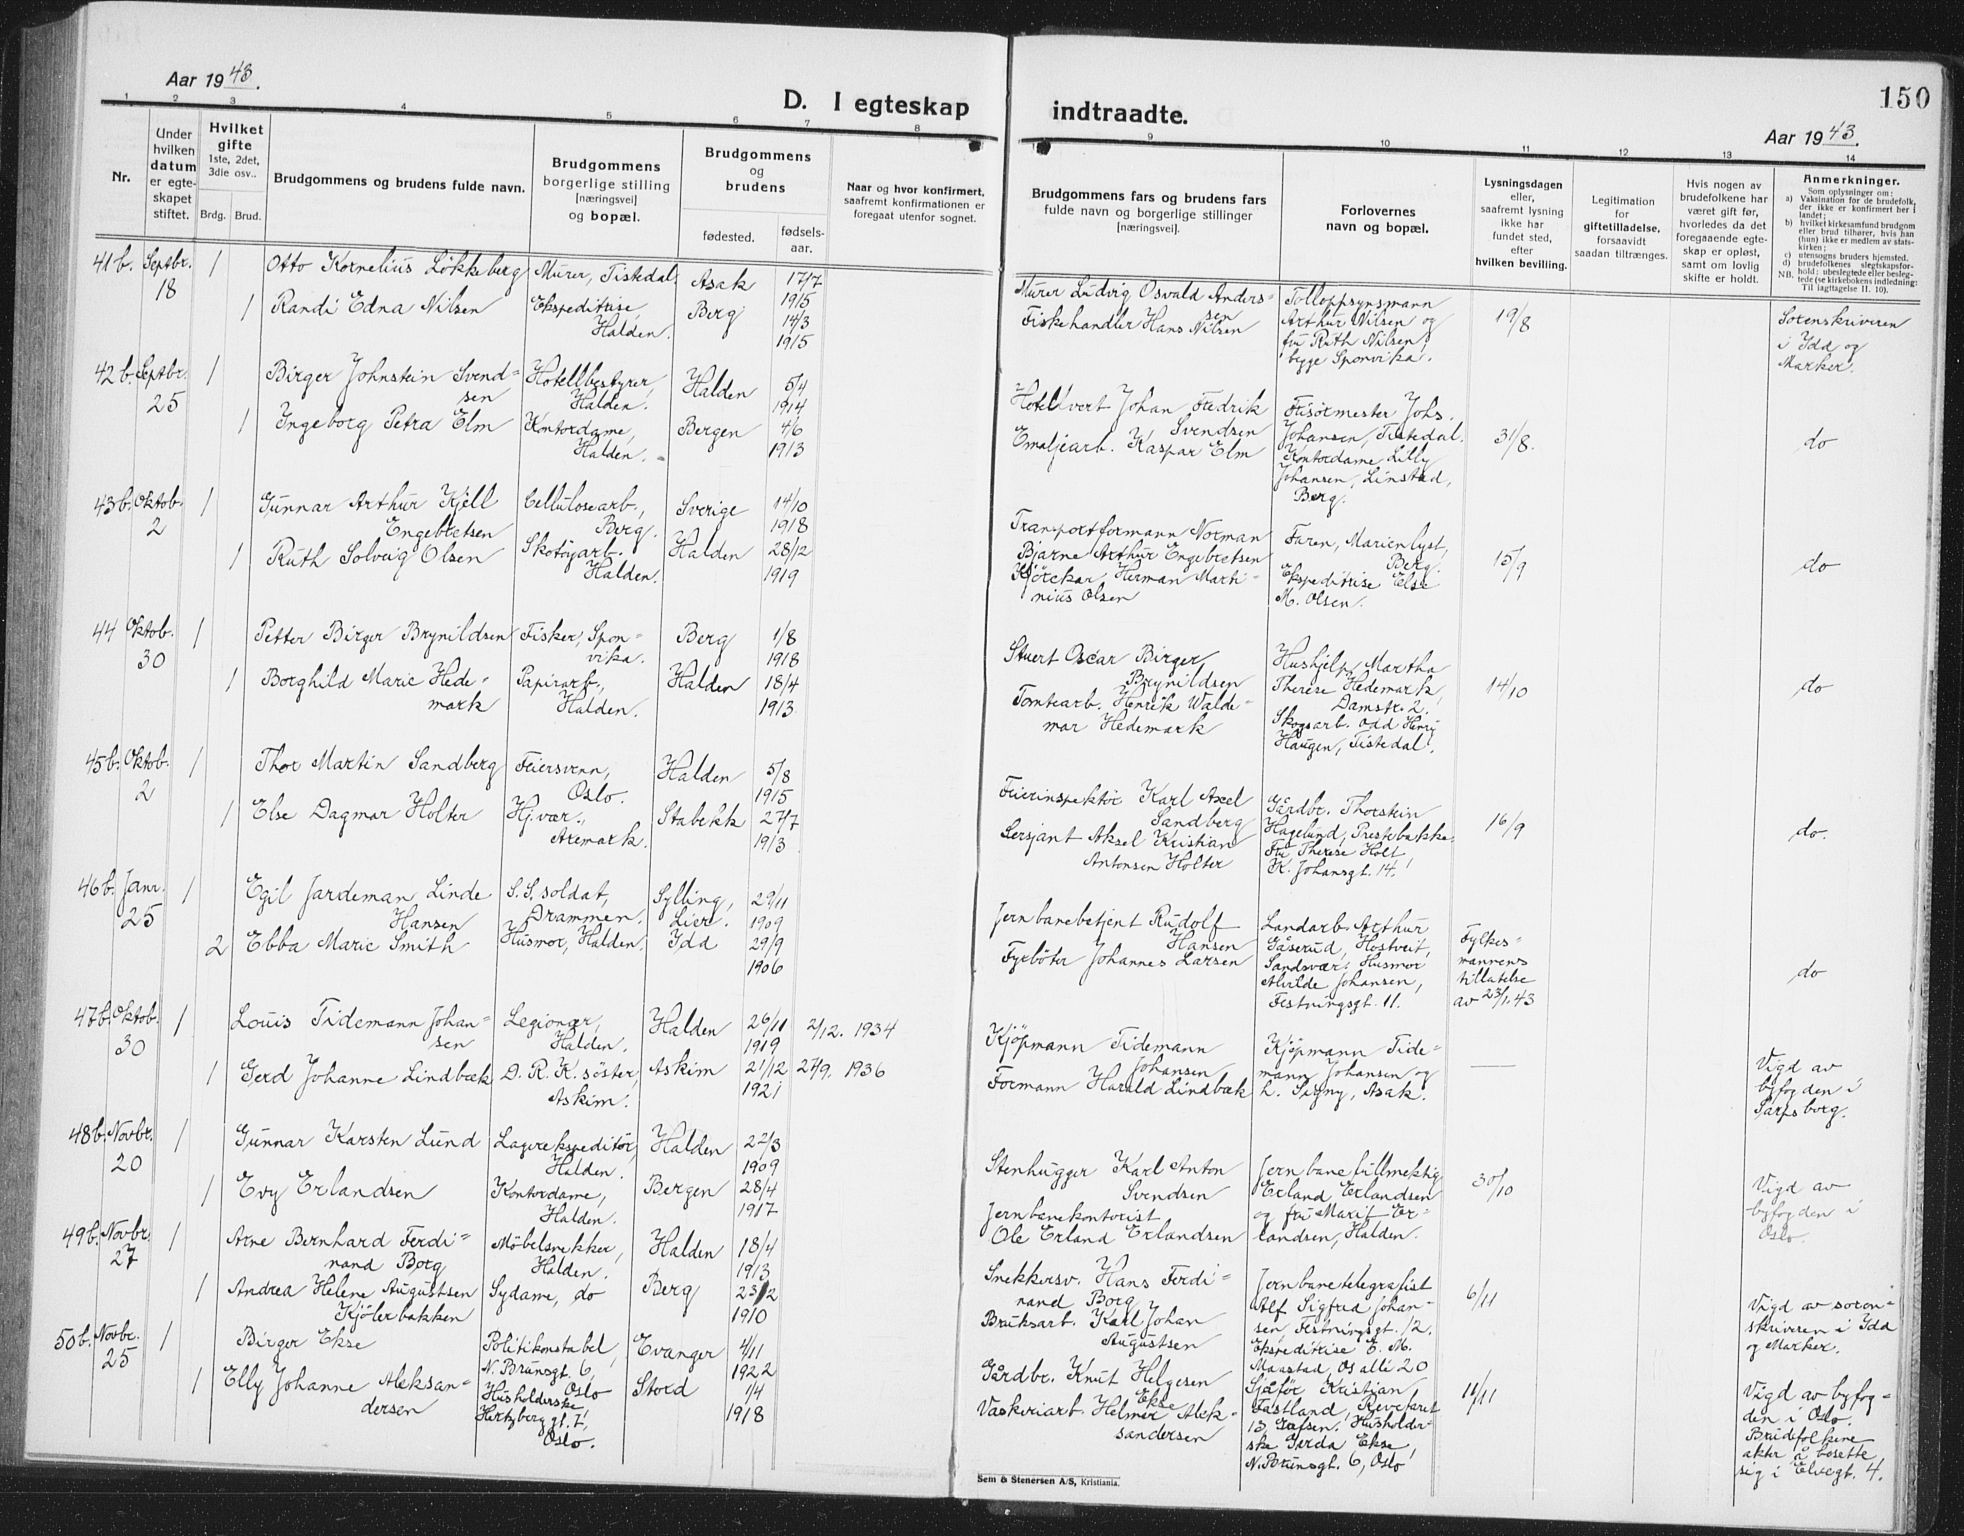 150
Aar 1943.
D. I egteskap indtraadte.
Aar 1943.
1 2 3 4 5 6 7 8 9 10 11 12 13 14
Nr.
Under hvilken datum er egte-skapet stiftet.
Hvilket gifte 1ste, 2det, 3die osv..
Brdg. Brud.
Brudgommens og brudens fulde navn.
Brudgommens borgerlige stilling [næringsvei] og bopæl.
Brudgommens og brudens
fødested. fødsels-aar.
Naar og hvor konfirmert, saafremt konfirmationen er foregaat utenfor sognet.
Brudgommens fars og brudens fars fulde navn og borgerlige stillinger [næringsvei].
Forlovernes navn og bopæl.
Lysningsdagen eller, saafremt lysning ikke har fundet sted, efter hvilken bevilling.
Legitimation for giftetilladelse, forsaavidt saadan tiltrænges.
Hvis nogen av brudefolkene har været gift før, hvorledes da det foregaaende egte-skap er opløst, samt om lovlig skifte er holdt.
Anmerkninger.
Som oplysninger om:
a) Vaksination for de brudefolk, der ikke er konfirmert her i landet;
b) hvilket kirkesamfund brudgom eller brud tilhører, hvis han (hun) ikke er medlem av stats-kirken;
c) utensogns bruders hjemsted.
d) brudefolkenes slegtskapsfor-hold: ubeslegtede eller besleg-tede (se kirkebokens indledning:
NB. Til iagttagelse II. 10).
41 b. Septbr. 18 1 Otto Kornelius Løkkeberg Murer, Tistedal. Asak 17/7 1915
1 Randi Edna Nilsen Ekspeditrise, Halden. Berg 14/3 1915
Murer Ludvig Osvald Anderssen
Fiskehandler Hans Nilsen
Tolloppsynsmann Arthur Nilsen og fru Ruth Nilsen, begge Sponvika.
19/8
Sorenskriveren i Idd og Marker.
42 b. Septbr. 25 1 Birger Johnstein Svend=sen Hotellbestyrer, Halden. Halden 5/4 1914
1 Ingeborg Petra Elm Kontordame, Halden. Bergen 4/6 1913
Hotellvert Johan Fredrik Svendsen
Emaljearb. Kaspar Elm
Frisørmester Johs. Johansen, Tistedal. Kontordame Lilly Johansen, Linstad, Berg.
31/8.
do
43 b. Oktob. 2 1 Gunnar Arthur Kjell Engebretsen Cellulosearb., Berg. Sverige 14/10 1918
1 Ruth Solveig Olsen Skotøyarb. Halden. Halden 28/12 1919
Transportformann Norman Bjarne Arthur Engebretsen
Herman Marti-nius Olsen
Faren, Marienlyst, Berg. Ekspeditrise Else M. Olsen.
15/9
do
44 Oktob. 30 1 Petter Birger Brynildsen Fisker, Spon-vika. Berg 1/8 1918
1 Borghild Marie Hede-mark Papirarb., Halden. Halden 18/4 1913
Stuert Oscar Birger Brynildsen
Tomtearb. Henrik Walde-mar Hedemark
Hushjelp Martha Therese Hedemark, Damstr. 2. Skogsarb. Odd Henry Haugen, Tistedal.
14/10
do
45 b. Oktob. 2 1 Thor Martin Sandberg Feiersvenn, Oslo. Halden 5/8 1915
1 Else Dagmar Holter Hj.vær., Aremark. Stabekk 27/7 1913
Feierinspektør Karl Axel Sandberg
Sersjant Aksel Kristian Antonsen Holter
Gårdbr. Thorstein Hagelund, Prestebakke. Fru Therese Holt, K. Johansgt. 14.
16/9
do.
46 b. Janr. 25 1 Egil Jardeman Linde Hansen S.S. soldat, Drammen. Sylling, Lier. 29/11 1909
2 Ebba Marie Smith Husmor, Halden. Idd 29/9 1906
Jernbanebetjent Rudolf Hansen
Fyrbøter Johannes Larsen
Landarb. Arthur Gåserud, Hostveit, Sandsvær. Husmor Alvilde Johansen, Festningsgt. 11.
Fylkes-mannens tillatelse av 23/1.43
do
47 b. Oktob. 30 1 Louis Tidemann Johan-sen Legionær, Halden. Halden 26/11 1919 2/12. 1934
1 Gerd Johanne Lindbæk D. R. K. søster, Askim. Askim 21/12 1921 27/9. 1936
Kjøpmann Tidemann Johansen
Formann Harald Lindbæk
Kjøpmann Tide-mann Johansen og h. Signy, Asak.
—
Vigd av byfogden i Sarpsborg.
48 b. Novbr. 20 1 Gunnar Karsten Lund Lagerekspeditør, Halden. Halden 22/3 1909
1 Evy Erlandsen Kontordame, Halden. Bergen 28/4 1917
Stenhugger Karl Anton Svendsen
Jernbanekontorist Ole Erland Erlandsen
Jernbanefullmektig Erland Erlandsen og fru Marit Er-landsen, Halden.
30/10
Vigd av byfogden i Oslo.
49 b. Novbr. 27 1 Arne Bernhard Ferdi-nand Borg Møbelsnekker, Halden. Halden 18/4 1913
1 Andrea Helene Augustsen Kjølerbakken Sydame, do Berg 23/2 1910
Snekkersv. Hans Ferdi-nand Borg
Bruksarb. Karl Johan Augustsen
Jernbanetelegrafist Alf Sigfred Johan-sen, Festningsgt. 12. Ekspeditrise E. M. Maastad, Os allé 20
6/11
Vigd av soren-skriveren i Idd og Marker.
50 b. Novbr. 25 1 Birger Ekse Politikonstabel, N. Brunsgt. 6, Oslo Evanger 4/11 1922
1 Elly Johanne Aleksan-dersen Husholderske, Hertzberggt. 7, Oslo. Stord 1/4 1918
Gårdbr. Knut Helgesen Ekse
Vaskeriarb. Helmer Alek-sandersen
Sjåfør Kristian Fastland, Revefaret 13, Grefsen. Husholder-ske Gerda Ekse, N. Brunsgt. 6, Oslo
11/11
Vigd av byfog-den i Oslo. Brudefolkene akter å bosette sig i Elvegt. 4.
Sem & Stenersen A/S, Kristiania.